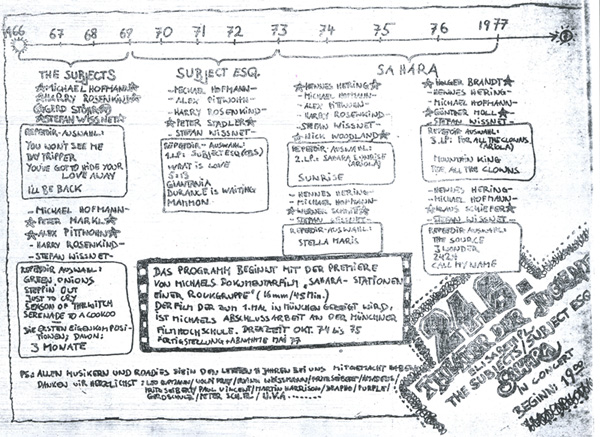 1966 67 68 69 70 71 72 73 74 75 76 1977
THE SUBJECTS
MICHAEL HOFMANN
HARRY ROSENKIND
GERD STÖRR
STEFAN WISSNET
REPERTOIR-AUSWAHL:
YOU WON'T SEE ME
DAY TRIPPER
YOU'VE GOT TO HIDE YOUR
LOVE AWAY
I'LL BE BACK
- MICHAEL HOFMANN -
PETER MARKL
ALEX PITTWOHN
- HARRY ROSENKIND -
- STEFAN WISSNET -
REPERTOIR AUSWAHL:
GREEN ONIONS
STEPPIN OUT
JUST TO CRY
SEASON OF THE WITCH
SERENADE TO A CUCKOO
DIE ERSTEN EIGENKOMPOSI-
TIONEN; DAVON:
3 MONATE
SUBJECT ESQ.
- MICHAEL HOFMANN -
- ALEX PITTWOHN -
- HARRY ROSENKIND -
PETER STADLER
- STEFAN WISSNET -
REPERTOIR-AUSWAHL:
1. LP: SUBJECT ESQ (CBS)
WHAT IS LOVE
5:13
GIANTANIA
DURANCE IS WAITING
MAMMON
SAHARA
HENNES HERING
- MICHAEL HOFMANN -
- ALEX PITTWOHN -
- HARRY ROSENKIND -
- STEFAN WISSNET -
NICK WOODLAND
REPERTOIR AUSWAHL:
2. LP: SAHARA SUNRISE
(ARIOLA)
SUNRISE
- HENNES HERING -
- MICHAEL HOFMANN -
STEFAN WISSNET
REPERTOIR AUSWAHL:
STELLA MARIS
HOLGER BRANDT
- HENNES HERING -
- MICHAEL HOFMANN -
GÜNTHER MOLL
STEFAN WISSNET
REPERTOIR AUSWAHL:
3. LP: FOR ALL THE CLOWNS
(ARIOLA)
MOUNTAIN KING
FOR ALL THE CLOWNS
- HENNES HERING -
- MICHAEL HOFMANN -
KLAUS SCHIEFER
- STEFAN WISSNET -
REPERTOIR AUSWAHL:
THE SOURCE
2424
CALL MY NAME
DAS PROGRAMM BEGINNT MIT DER PREMIERE
VON MICHAELS DOKUMENTARFILM „SAHARA - STATIONEN
EINER ROCKGRUPPE" (16mm/45Min.)
DER FILM DER ZUM 1. MAL IN MÜNCHEN GEZEIGT WIRD,
IST MICHAELS ABSCHLUSSARBEIT AN DER MÜNCHNER
FILMHOCHSCHULE. DREHZEIT OKT. 74 bis 75
FERTIGSTELLUNG + ABNAHME MAI 77
24.9.
THEATER DER JUGEND
ELISABETHPL.
THE SUBJECTS/SUBJECT ESQ
SAHARA
IN CONCERT
BEGINN: 19 00
PS: ALLEN MUSIKERN UND ROADIES DIE IN DEN LETZTEN 11 JAHREN BEI UNS MITGEMACHT HABEN
DANKEN WIR HERZLICHST: / PAUL VINCENT / MARTIN HARRISON / SHAPMO / PURPLE /
U.V.A.